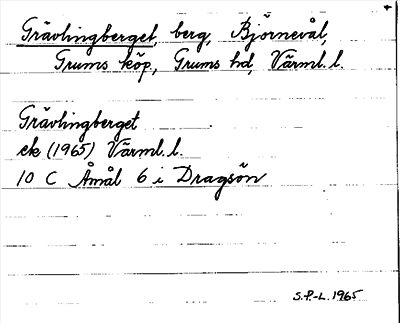 Grävlingberget, berg, Björnevål,
Grums köp., Grums hd, Värml. l.
Grävlingberget
ek (1965) Värml. l.
10 C Åmål 6 i Dragsön
S.P-L. 1965